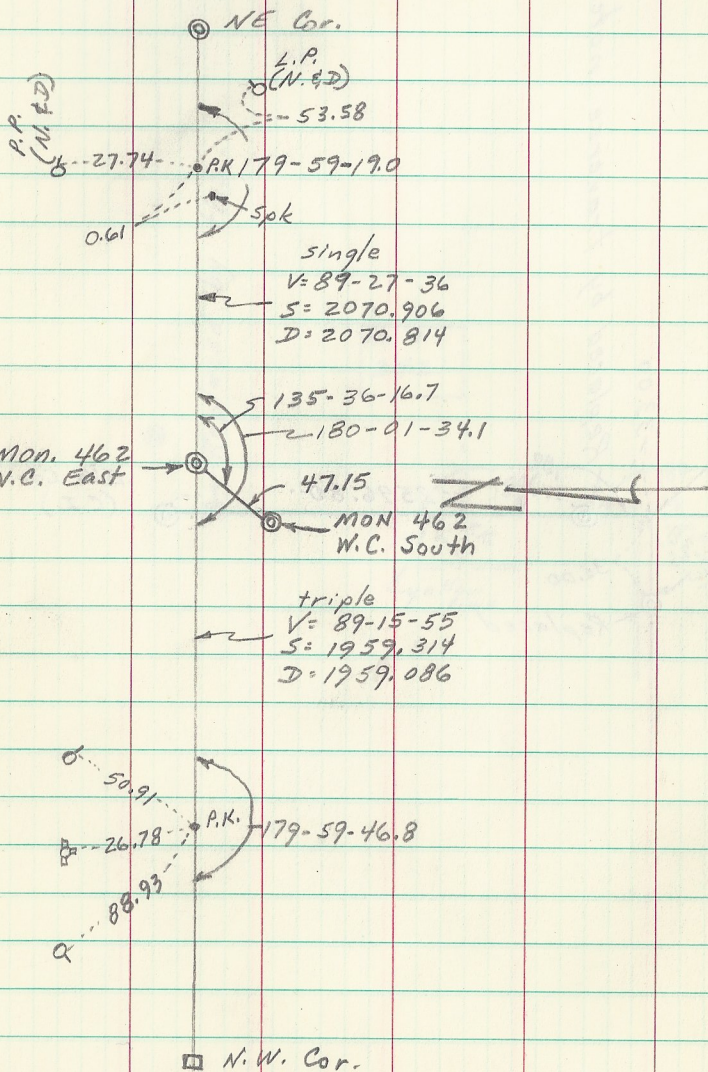 NE Cor.
L.P.
(N. & D)
53.58
P.P.
(N. & D)
27.74
P.K 179-59-19.0
spk
0.61
single
V= 89-27-36
S= 2070.906
D= 2070.814
135-36-16.7
180-01-34.1
Mon. 462
W.C. East
47.15
MON 462
W.C. South
N
triple
V= 89-15-55
S= 1959.314
D= 1959.086
50.91
P.K. 179-59-46.8
26.78
88.93
N.W. Cor.